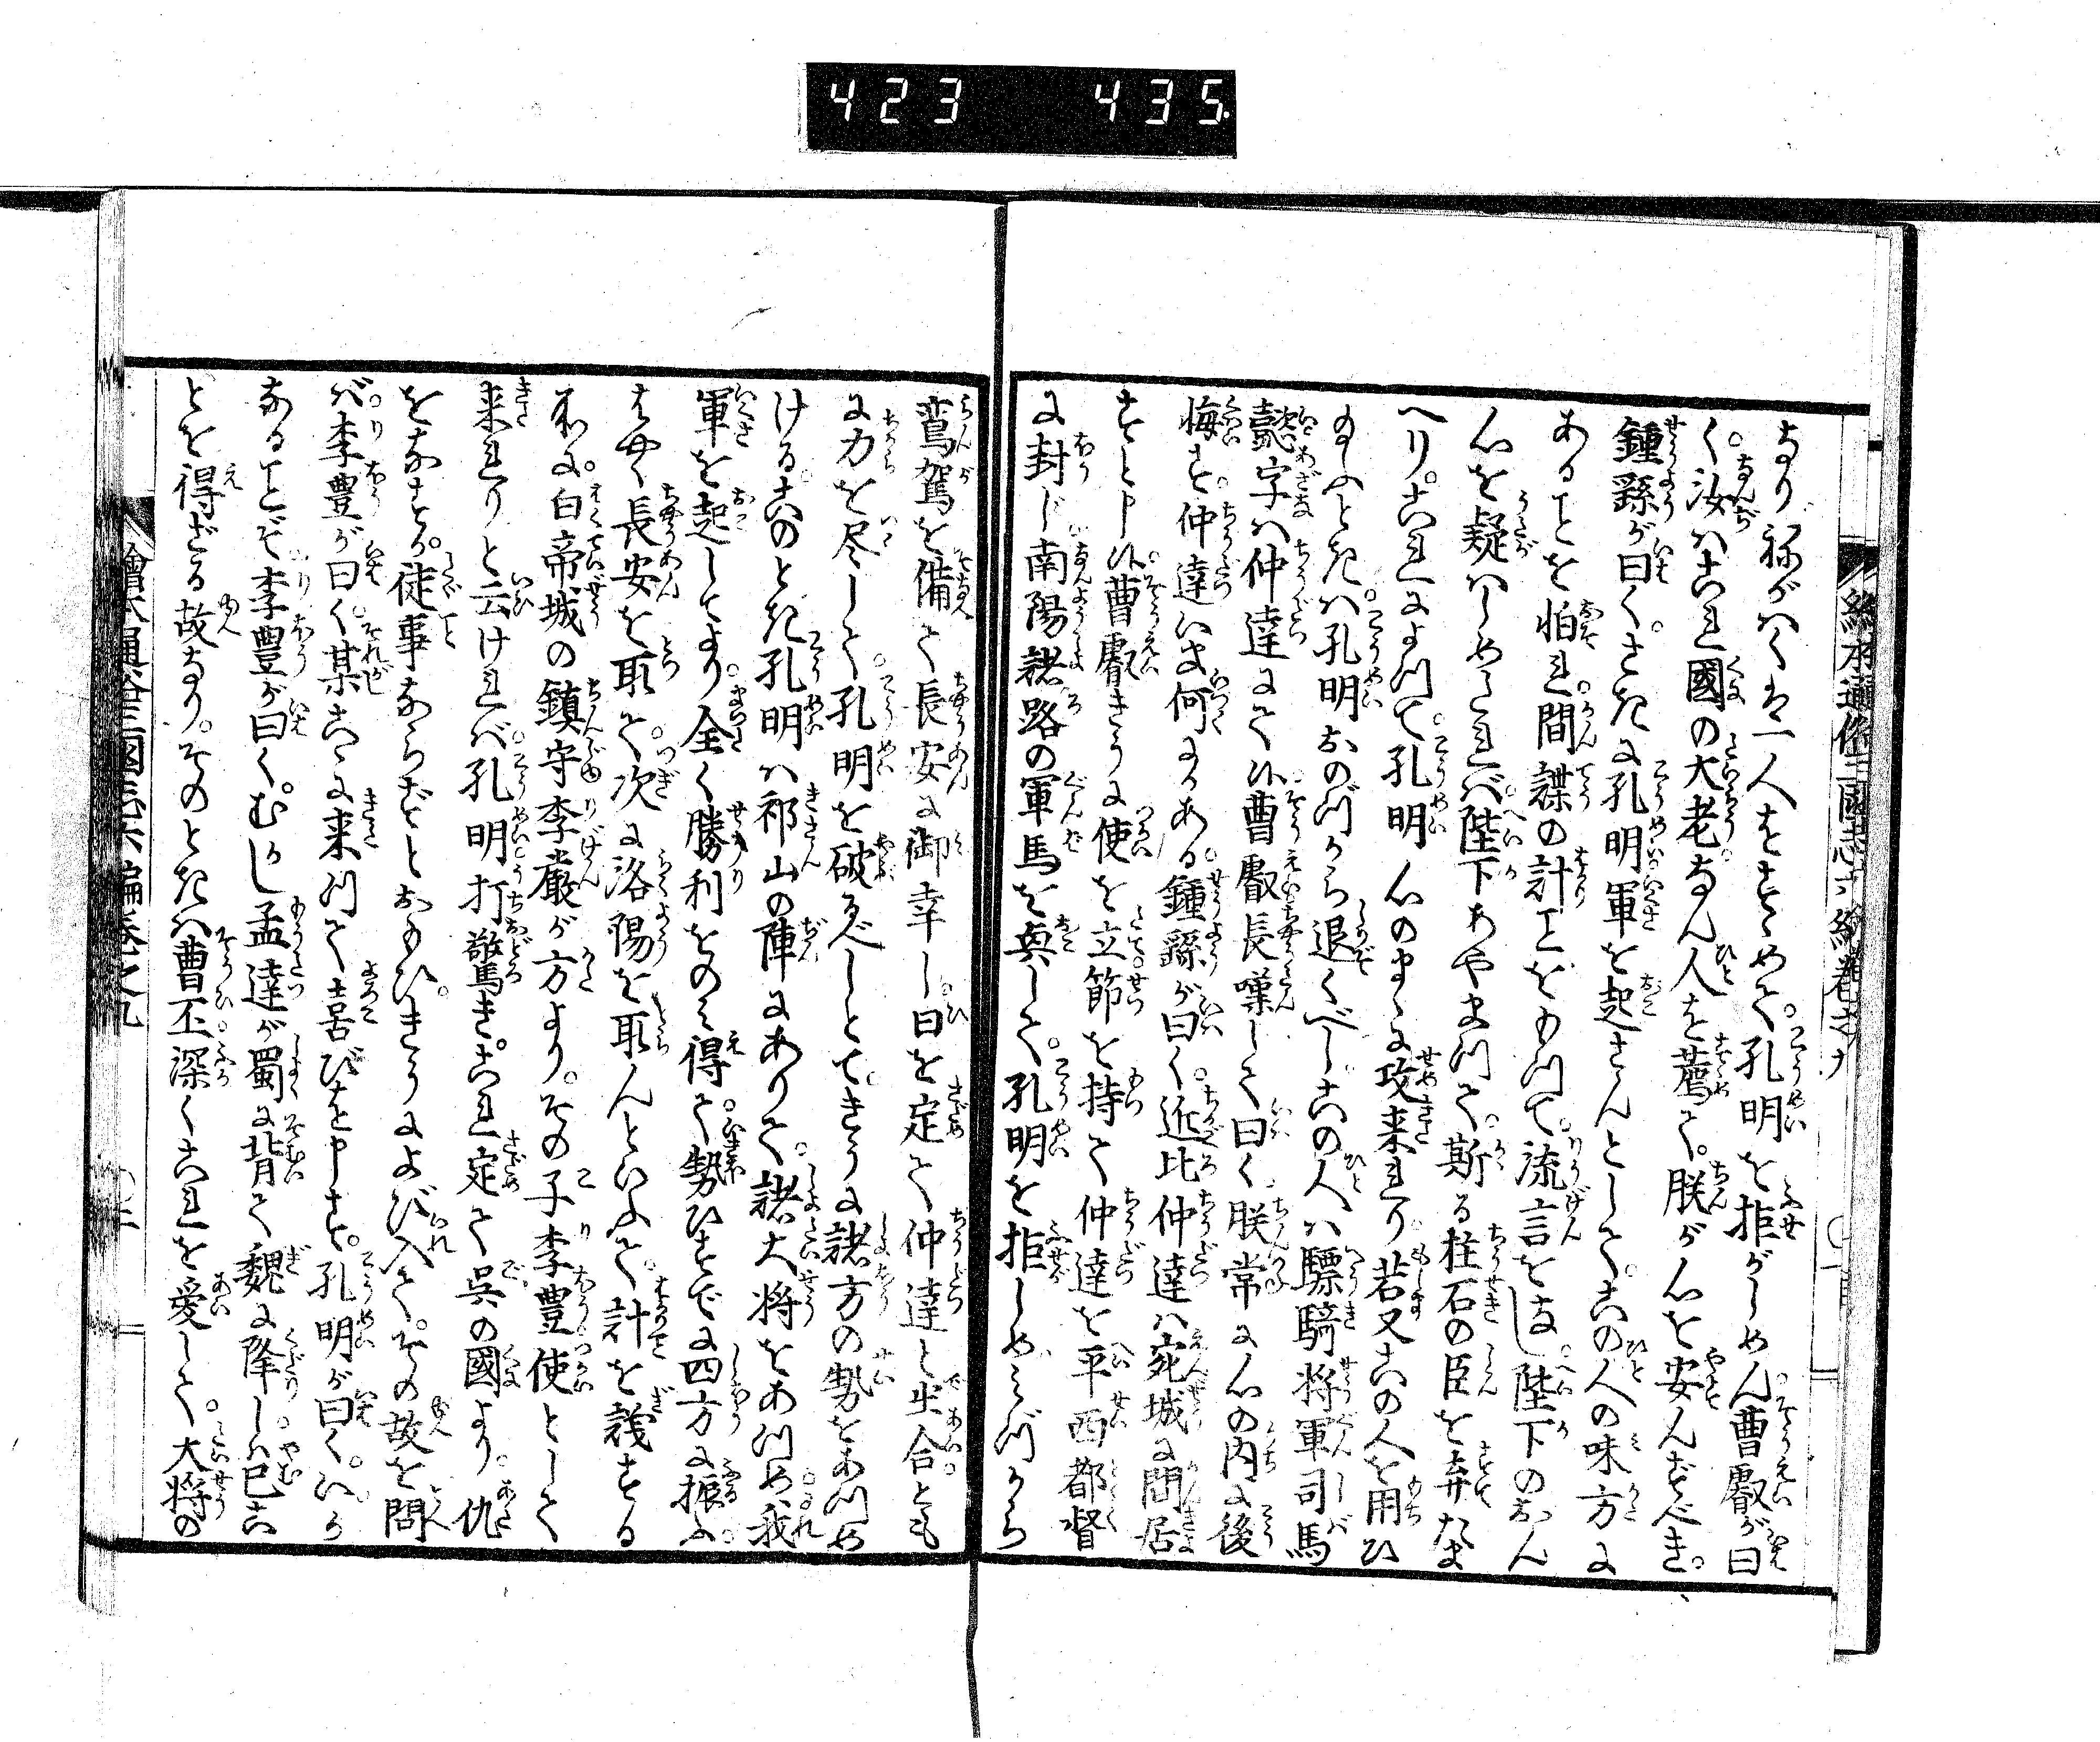 423 435
なり。ねがはくは一人をすゝめて。孔明を拒がしめん。曹叡が曰
く。汝はこれ國の大老なん人を薦て。朕が心を安んずべき。
鍾繇が曰く。さきに孔明軍を起さんとして。この人の味方に
あることを怕れ。間諜の計ことをもつて。流言をなし。陛下のおん
心を疑はしめたれば。陛下あやまつて。斯る柱石の臣を弃たま
へり。これによつて。孔明心のまゝに攻来れり。若又この人を用ひ
玉ふときは。孔明おのづから退くべし。この人は驃騎将軍司馬
懿字は仲達にて候。曹叡長嘆して曰く。朕常に心の内に後
悔す。仲達いま何にかある。鍾繇が曰く。近比仲達は宛城に閒居
すと申候。曹叡きうに使を立。節を持て仲達を平西都督
に封じ。南陽諸路の軍馬を興して。孔明を拒しめ。みづから
鸞駕を備て長安に御幸し。日を定て仲達と出合。ともに
に力を尽して。孔明を破るべしとて。きうに諸方の勢をあつめ
ける。このとき孔明は祁山の陣にありて。諸大将をあつめ。我
軍を起してより。全く勝利をのみ得て。勢ひすでに四方に振ふ。
はやく長安を取て。次に洛陽を取んといふて。計を議する
ホに。白帝城の鎮守李嚴が方より。その子李豊使として
来れりと云ければ。孔明打驚き。これ定て呉の國より。仇
をなすか。徒事ならずとおもひ。きうによび入て。その故を問
ば。李豊が曰く。某こゝに来つて喜びを申す。孔明が曰く。いか
なることぞ。李豊が曰く。むかし孟達が蜀に背て魏に降しは。巳こ
とを得ざる故なり。そのときは曹丕深くこれを愛して。大将の